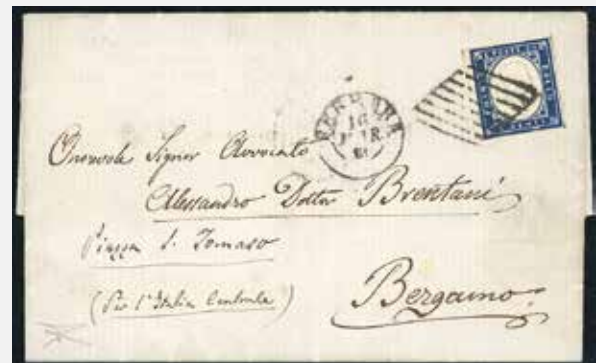 FERRARA
16
Onorevole Signor Avvocato
Alessandro Dottor Brentani
Piazza S. Tomaso
(Per l'Italia Centrale)
Bergamo.